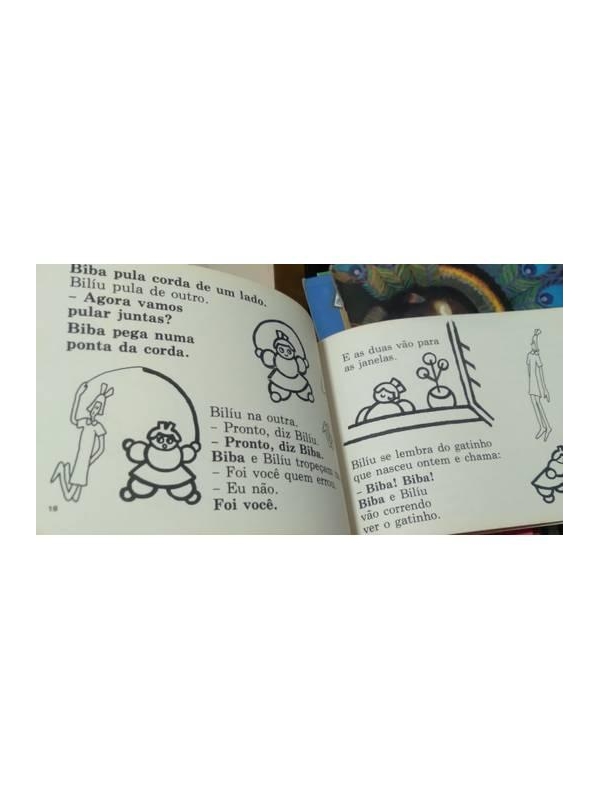 Biba pula corda de um lado.
Bilíu pula de outro.
– Agora vamos
pular juntas?
Biba pega numa
ponta da corda.
Bilíu na outra.
– Pronto, diz Bilíu.
– Pronto, diz Biba.
Biba e Bilíu tropeçam
– Foi você quem errou.
– Eu não.
Foi você.
E as duas vão para
as janelas.
Bilíu se lembra do gatinho
que nasceu ontem e chama:
– Biba! Biba!
Biba e Bilíu
vão correndo
ver o gatinho.